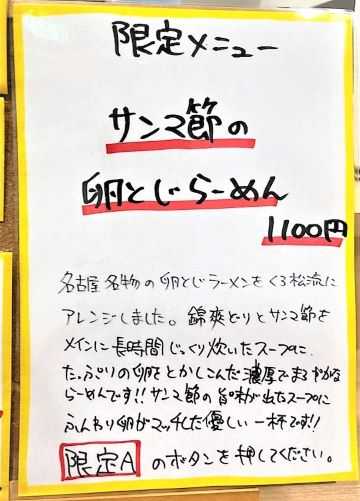 限定メニュー
サンマ節の
卵とじらーめん
1100円
名古屋名物の卵とじラーメンをくろ松流に
アレンジしました。錦爽どりとサンマ節を
メインに長時間じっくり炊いたスープに、
たっぷりの卵をとかしこんだ濃厚でまろやかな
らーめんです!!サンマ節の旨味が出たスープに
ふんわり卵がマッチした優しい一杯です!!
限定A のボタンを押してください。